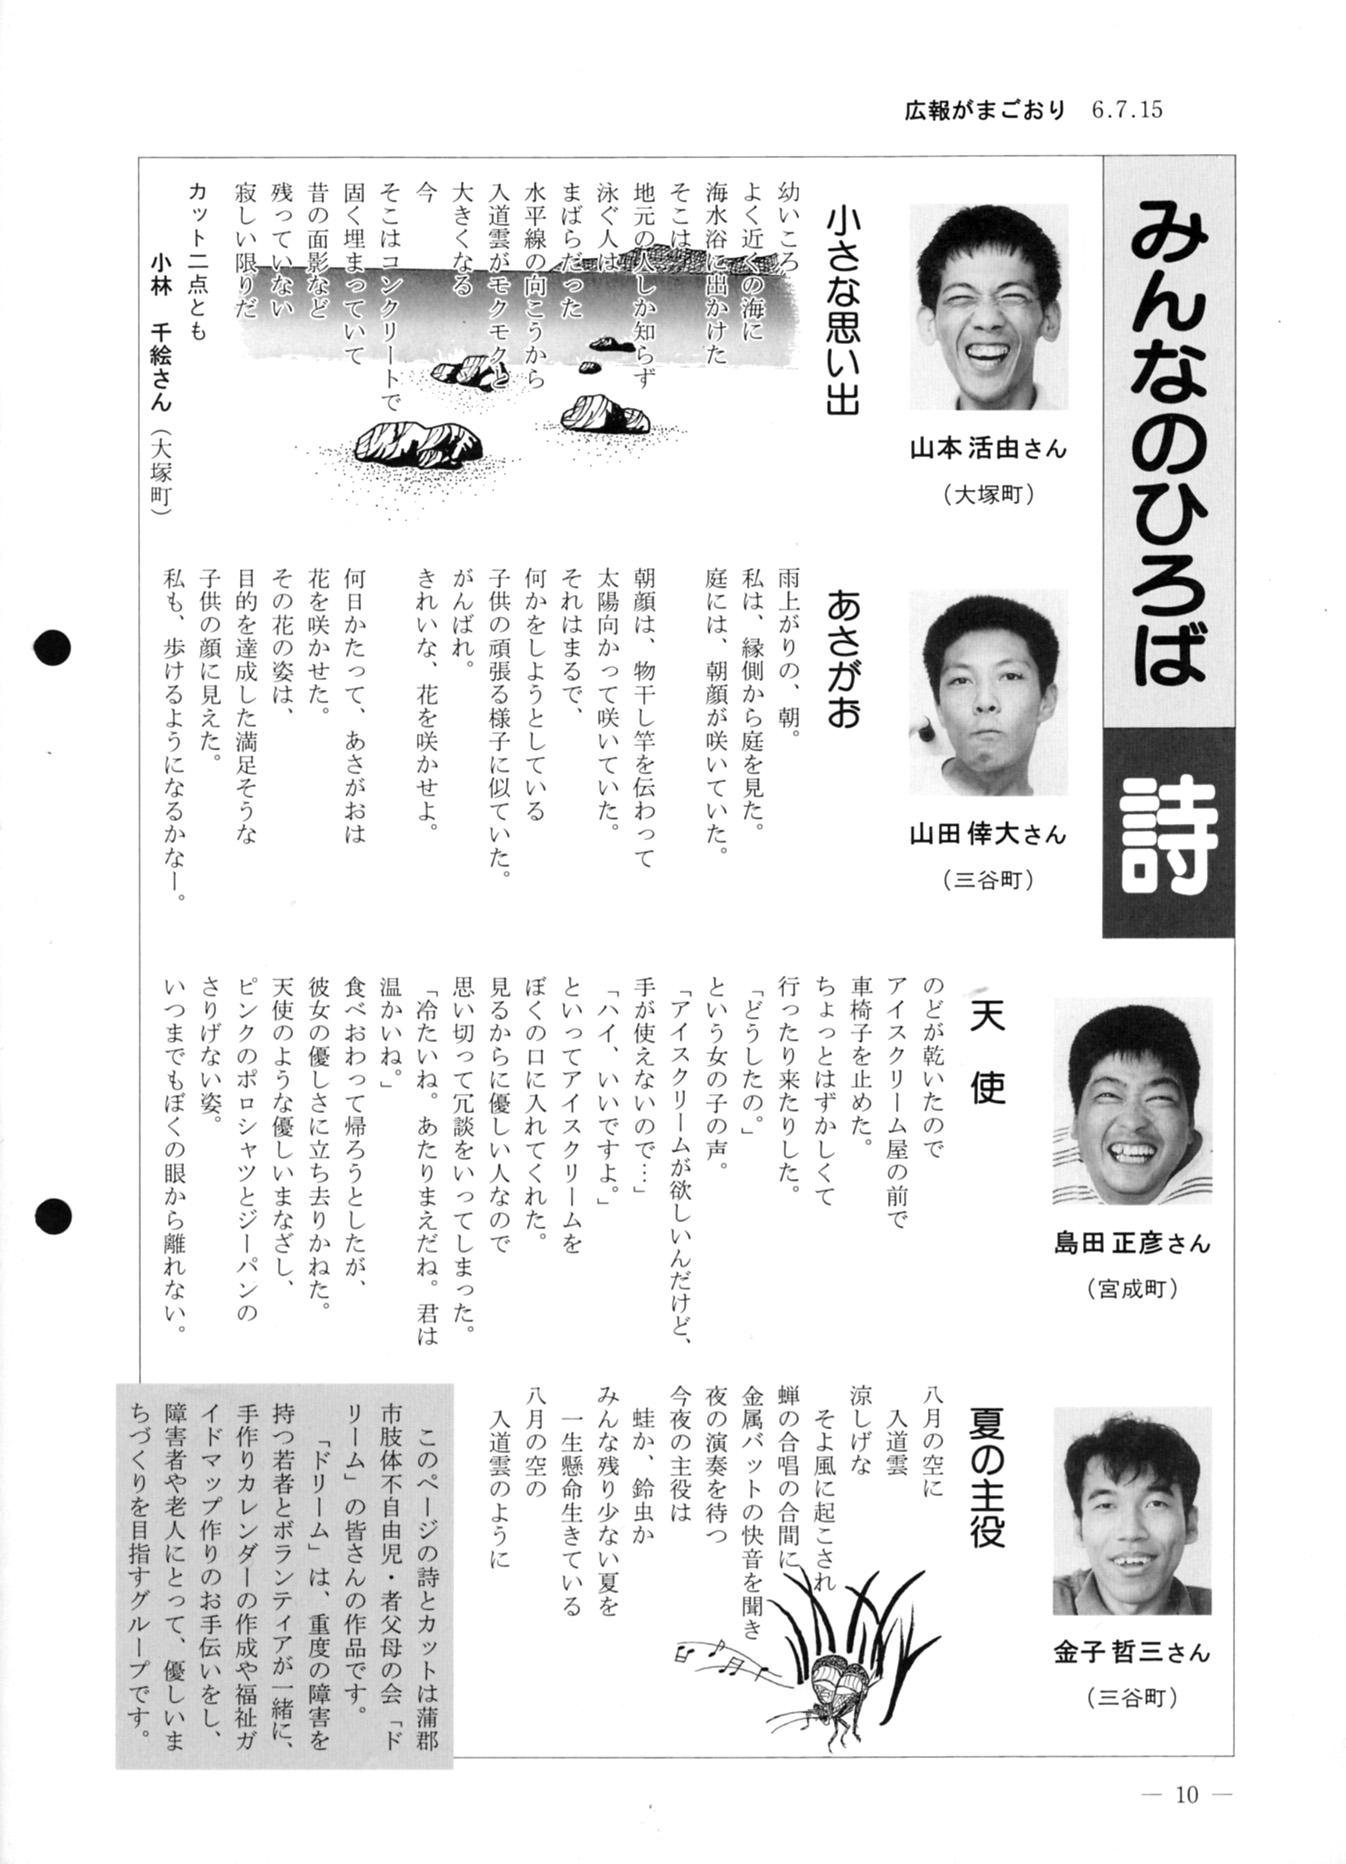 広報がまごおり 6.7.15
みんなのひろば
詩
山本活由さん
（大塚町）
小さな思い出
幼いころ
よく近くの海に
海水浴に出かけた
そこは
地元の人しか知らず
泳ぐ人は
まばらだった
水平線の向こうから
入道雲がモクモクと
大きくなる
今
そこはコンクリートで
固く埋まっていて
昔の面影など
残っていない
寂しい限りだ
カット二点とも
小林 千絵さん（大塚町）
山田倖大さん
（三谷町）
あさがお
雨上がりの、朝。
私は、縁側から庭を見た。
庭には、朝顔が咲いていた。
朝顔は、物干し竿を伝わって
太陽向かって咲いていた。
それはまるで、
何かをしようとしている
子供の頑張る様子に似ていた。
がんばれ。
きれいな、花を咲かせよ。
何日かたって、あさがおは
花を咲かせた。
その花の姿は、
目的を達成した満足そうな
子供の顔に見えた。
私も、歩けるようになるかなー。
島田正彦さん
（宮成町）
天使
のどが乾いたので
アイスクリーム屋の前で
車椅子を止めた。
ちょっとはずかしくて
行ったり来たりした。
「どうしたの。」
という女の子の声。
「アイスクリームが欲しいんだけど、
手が使えないので…」
「ハイ、いいですよ。」
といってアイスクリームを
ぼくの口に入れてくれた。
見るからに優しい人なので
思い切って冗談をいってしまった。
「冷たいね。あたりまえだね。君は
温かいね。」
食べおわって帰ろうとしたが、
彼女の優しさに立ち去りかねた。
天使のような優しいまなざし、
ピンクのポロシャツとジーパンの
さりげない姿。
いつまでもぼくの眼から離れない。
金子哲三さん
（三谷町）
夏の主役
八月の空に
入道雲
涼しげな
そよ風に起こされ
蝉の合唱の合間に
金属バットの快音を聞き
夜の演奏を待つ
今夜の主役は
蛙か、鈴虫か
みんな残り少ない夏を
一生懸命生きている
八月の空の
入道雲のように
このページの詩とカットは蒲郡
市肢体不自由児・者父母の会「ド
リーム」の皆さんの作品です。
「ドリーム」は、重度の障害を
持つ若者とボランティアが一緒に、
手作りカレンダーの作成や福祉ガ
イドマップ作りのお手伝いをし、
障害者や老人にとって、優しいま
ちづくりを目指すグループです。
— 10 —